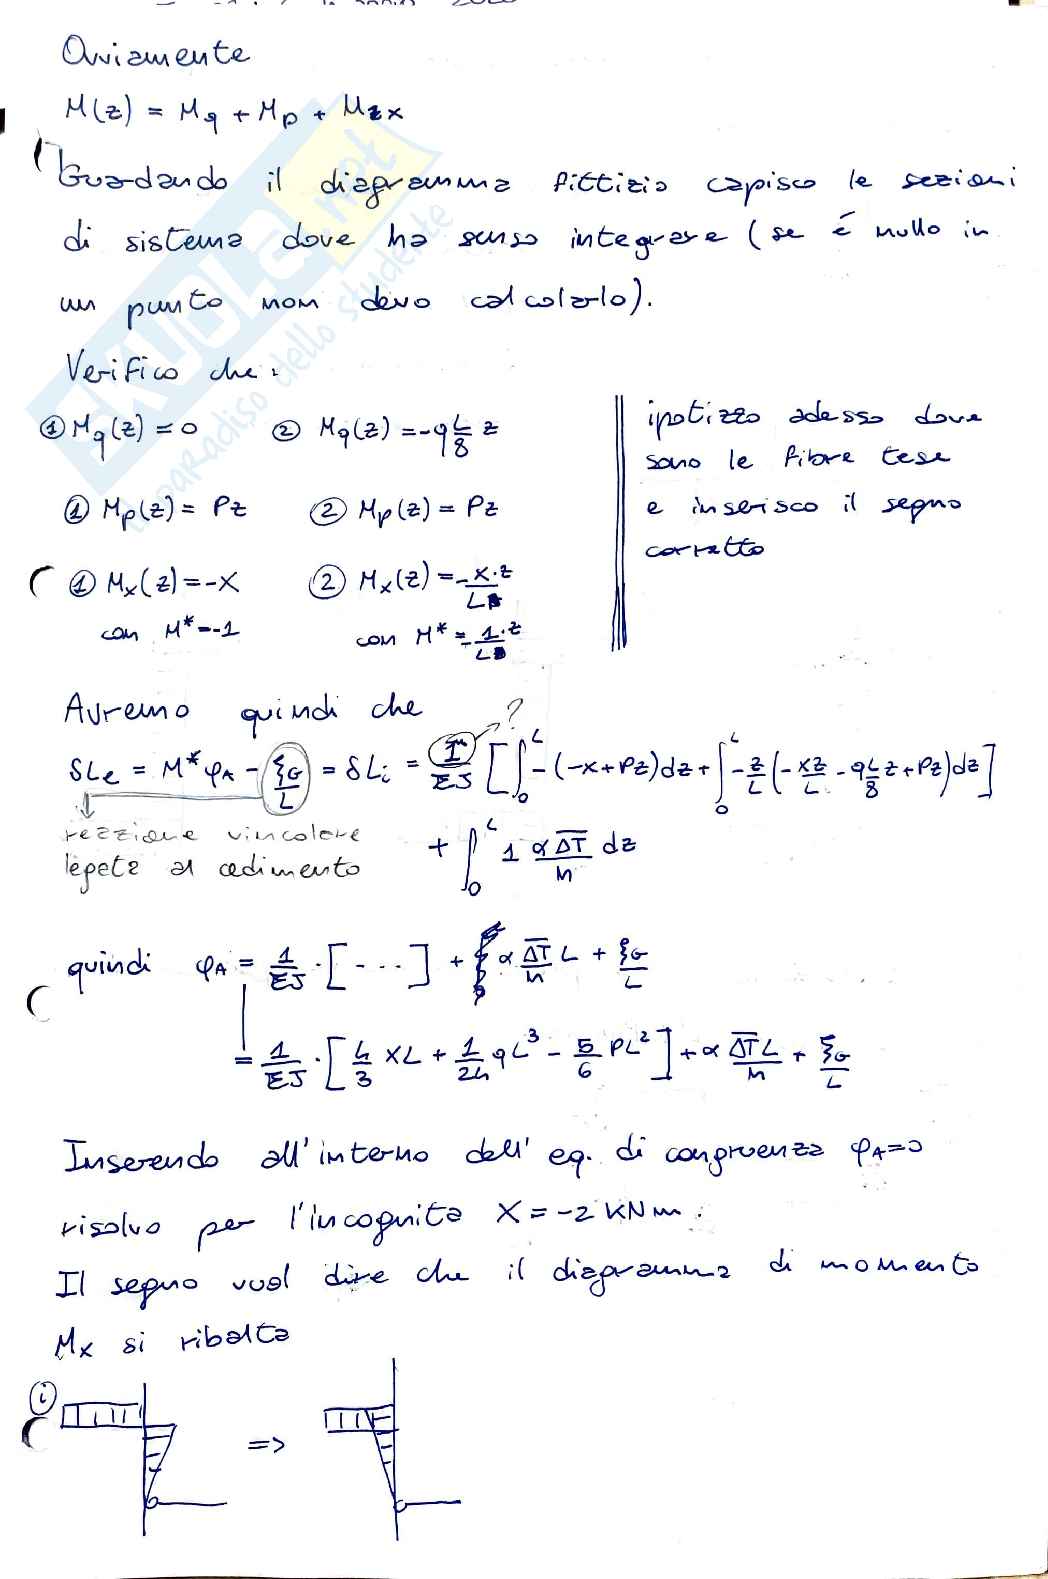 Ovviamente
M(z) = Mq + Mp + Mzx
Guardando il diagramma fittizio capisco le sezioni
di sistema dove ha senso integrare (se é nullo in
un punto non devo calcolarlo).
Verifico che:
① Mq(z) = 0 ② Mq(z) = -q L/8 z
① Mp(z) = Pz ② Mp(z) = Pz
① Mx(z) = -X ② Mx(z) = -X·z/L
con M* = -1 con M* = -1·z/L
ipotizzo adesso dove
sono le fibre tese
e inserisco il segno
corretto
Avremo quindi che ?
δLe = M* φA - ξG/L = δLi = 1/EJ [∫₀ᴸ -(-X+Pz)dz + ∫₀ᴸ -z/L (-Xz/L - qL/8 z + Pz)dz]
reazione vincolare
legata al cedimento
+ ∫₀ᴸ 1 α ΔT/h dz
quindi φA = 1/EJ · [- - ...] + α ΔT/h L + ξG/L
= 1/EJ · [4/3 XL + 1/24 qL³ - 5/6 PL²] + α ΔT L/h + ξG/L
Inserendo all'interno dell' eq. di congruenza φA=0
risolvo per l'incognita X = -2 kNm.
Il segno vuol dire che il diagramma di momento
Mx si ribalta
ⓘ =>
SKUOLA.net
il paradiso dello studente